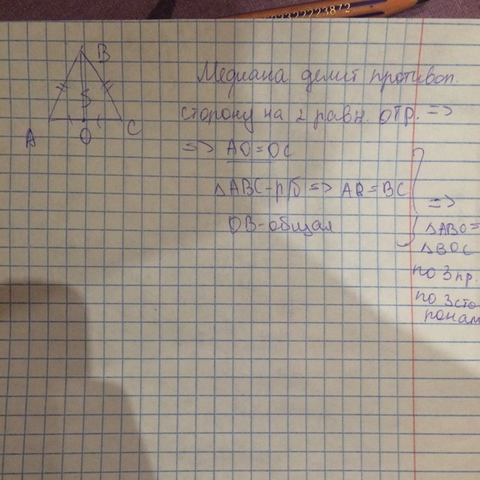 B
A
O
C
Медиана делит противоп.
сторону на 2 равн. отр. =>
=> AO = OC
△ABC - р/б => AB = BC
OB - общая
=>
△ABO =
△BOC
по 3 пр.
по 3 сто
ронам